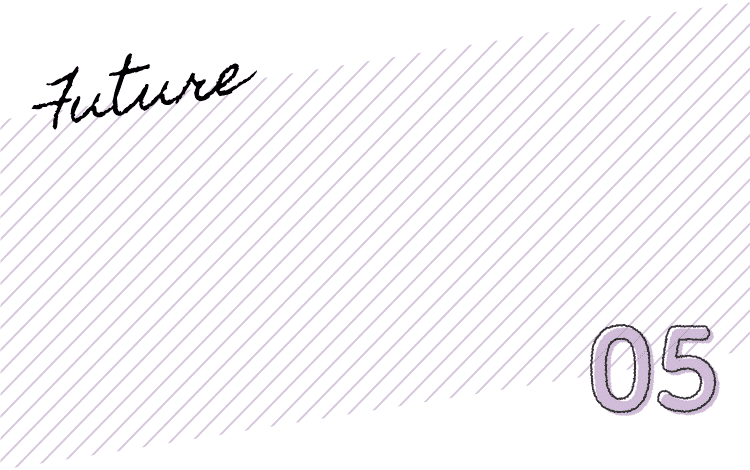 Future
05